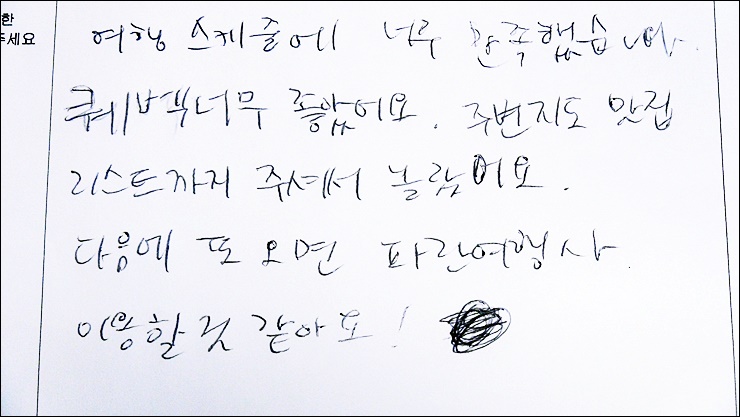 한
주세요
여행 스케줄에 너무 만족했습니다.
퀘벡 너무 좋았어요. 주변지도 맛집
리스트까지 주셔서 놀랐어요.
다음에 또 오면 파란여행사
이용할 것 같아요!